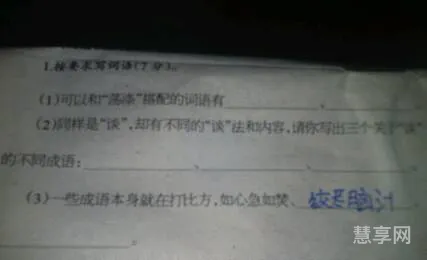 1.按要求写词语(7分)。
(1)可以和“荡漾”搭配的词语有________、________
(2)同样是“谈”,却有不同的“谈”法和内容,请你写出三个关于“谈”
的不同成语:________、________、________
(3)一些成语本身就在打比方,如心急如焚、绞尽脑汁
________。
慧享网